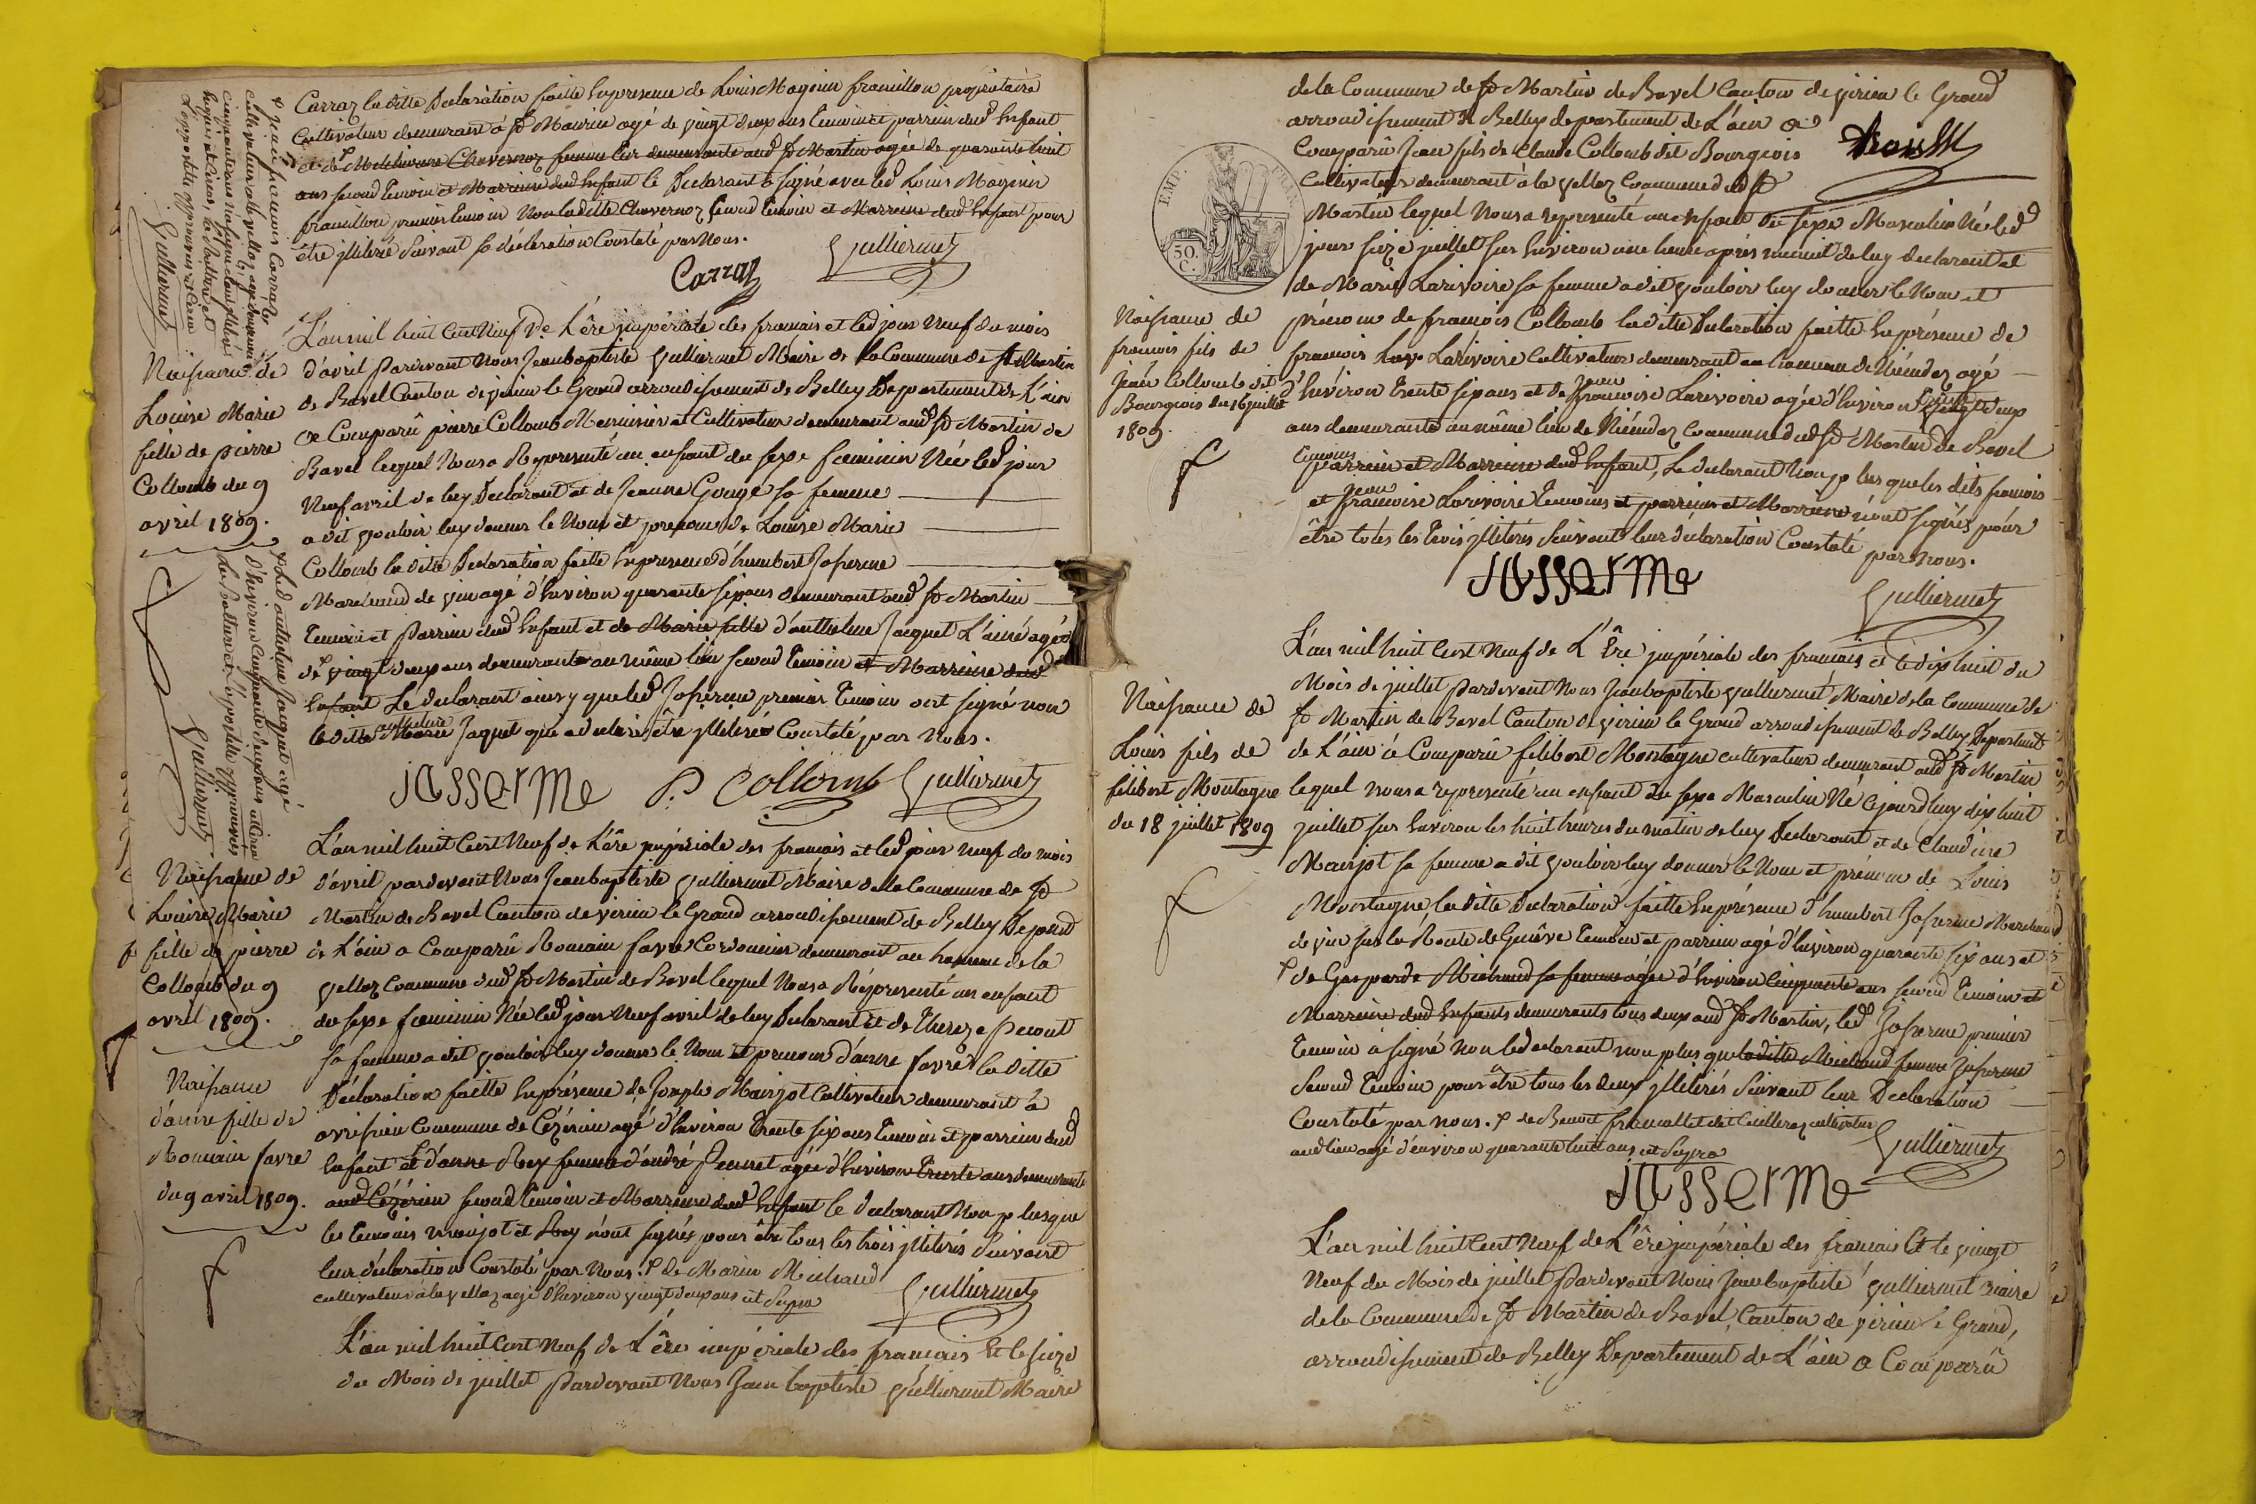 Carraz la ditte Declaration faitte En presence de Louis Magnin framillon propriétaire
Cultivateur demeurant à St Maurice agé de vingt deux ans Temoin et parrein dud Enfant
femme demeurante aud St Martin agée de quarante huit
ans second Temoin et Marreine dud Enfant le Declarant a signé avec led Louis Magnin
framillon premier Temoin Non laditte Chavernoz second Temoin et Marreine dud Enfant pour
être jlliteré Suivant sa déclaration Constaté par Nous.
Carraz
Gulliermet
Jean francois Carraz
cultivateur
Gulliermet
Naissance de
Louise Marie
fille de pierre
Collomb du 9
avril 1809.
L'an mil huit Cent Neuf De L'êre jmpériale des francais et led jour Neuf du mois
d'avril Pardevant Nous Jeanbaptiste Gulliermet Maire de la Commune de St Martin
de Bavel Canton de virieu le Grand arrondissement de Belley Departement de L'ain
a Comparû pierre Collomb Menuisier et Cultivateur demeurant aud St Martin de
Bavel lequel Nous a Représenté un enfant du sexe fœminin Née led jour
Neuf avril de luy Declarant et de Jeanne Gouge sa femme
a dit vouloir luy donner le Nom et prenom de Louise Marie
Collomb la ditte Declaration faitte En presence d'humbert Josserme
Marchand de vin agé d'Environ quarante six ans demeurant aud St Martin
Temoin et Parrein dud Enfant et de Marie fille d'anthelme Jacquet L'ainé agé
de vingt deux ans demeurante au même lieu second Temoin et Marreine dud
Enfant Le declarant ainsy que led Josserme premier Temoin ont signé non
le ditte anthelme Marie Jaquet qui a declaré être jlliteré Constaté par Nous.
jasserme P. Collomb Gulliermet
led anthelme Jacquet agé
d'Environ Cinquante deux ans
Gulliermet
Naissance de
Louise Marie
fille de pierre
Collomb du 9
avril 1809.
L'an mil huit Cent Neuf de L'êre jmpériale des francais et led jour neuf du mois
d'avril pardevant Nous Jeanbaptiste Gulliermet Maire de la Commune de St
Martin de Bavel Canton de virieu le Grand arrondissement de Belley
de L'ain a Comparû Romain favre Cordonnier demeurant au hameau de la
vellaz Commune dud St Martin de Bavel lequel Nous a Réprésenté un enfant
du sexe fœminin Née led jour Neuf avril de luy Declarant et de Thereze
sa femme a dit vouloir luy donner le Nom et prenom d'anne favre la ditte
Déclaration faitte En présence de Joseph Mainjot Cultivateur demeurant à
avrissieu Commune de Cézérieu agé d'Environ Trente six ans Temoin et parrein dud
Enfant et d'anne Rey femme d'andré agée d'Environ Trente ans demeurante
aud Cézérieu second Temoin et Marreine dud Enfant le declarant Non plus que
les temoins mainjot et Rey n'ont signés pour être tous les trois jlliterés Suivant
leur déclaration Constaté par Nous. de Marin Michaud
cultivateur à la vellaz agé d'Environ vingt deux ans ut Supra
Gulliermet
Naissance
d'anne fille de
Romain favre
du 9 avril 1809.
L'an mil huit Cent Neuf de L'êre impériale des francais Et le seize
du Mois de juillet Pardevant Nous Jean baptiste Gulliermet Maire
de la Commune de St Martin de Bavel Canton de virieu le Grand
arrondissement de Belley departement de L'ain a
Comparû Jean fils de Claude Collomb dit Bourgeois
Cultivateur demeurant à la vellaz Commune dud St
Martin lequel Nous a représenté un enfant du sexe Masculin Né led
jour seize juillet sur Environ une heure aprés minuit de luy declarant et
de Marie Larivoire sa femme a dit vouloir luy donner le Nom et
prénom de francois Collomb laditte Declaration faitte En présence de
francois Larivoire Cultivateur demeurant au hameau de Niémdoz agé
d'Environ trente six ans et de Jean francoise Larivoire agée d'Environ
ans demeurante au même lieu de Niémdoz Commune dud St Martin de Bavel
temoins parrein et Marreine dud Enfant, Le declarant Non plus que les dits francois
et Jean francoise Larivoire Temoins et parrein et Marreine n'ont signés pour
être tous les trois jlliterés Suivant leur déclaration Constaté par nous.
EMP.
50.
C.
Naissance de
francois fils de
Jean Collomb dit
Bourgeois du 16 juillet
1809.
jasserme
Gulliermet
Naissance de
Louis fils de
félibert Montagne
du 18 juillet 1809
L'an mil huit Cent Neuf de L'Êre jmpériale des francais et le dix huit du
Mois de juillet Pardevant Nous Jeanbaptiste Gulliermet Maire de la Commune de
St Martin de Bavel Canton de virieu le Grand arrondissement de Belley Departement
de L'ain à Comparû félibert Montagne cultivateur demeurant aud St Martin
lequel nous a représenté un enfant du sexe Masculin Né Cejourdhuy dix huit
juillet sur Environ les huit heures du matin de luy Declarant et de Claudine
Mainjot sa femme a dit vouloir luy donner le Nom et prénom de Louis
Montagne, laditte declaration faitte En présence d'humbert Josserme Marchand
de vin sur la Route de Genêve Temoin et parrein agé d'Environ quarante six ans et
de Gasparde Michaud sa femme agée d'Environ Cinquante ans second Temoin et
Marreine dud Enfants demeurants tous deux aud St Martin, led Josserme premier
Temoin a signé Non le declarant non plus que laditte Michaud femme Josserme
second Temoin pour être tous les deux jlliterés Suivant leur Declaration
Constaté par nous. de Benoit francallet dit Cuilleraz cultivateur
aud lieu agé d'environ quarante huit ans ut Supra
Gulliermet
jasserme
L'an mil huit Cent Neuf de L'êre jmpériale des francais Et le vingt
Neuf du Mois de juillet Pardevant Nous Jeanbaptiste Gulliermet maire
de la Commune de St Martin de Bavel, Canton de virieu le Grand,
arrondissement de Belley Departement de L'ain a Comparû